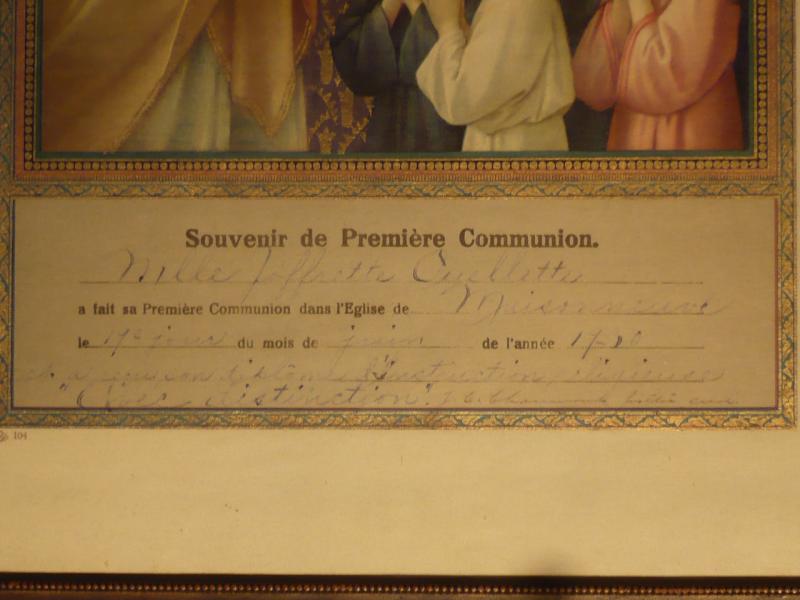 Souvenir de Première Communion.
Mlle Joffrette Ouellette
a fait sa Première Communion dans l'Eglise de Maisonneuve
le 17e jour du mois de juin de l'année
et a reçu son diplôme d'instruction religieuse
"Avec distinction".
104